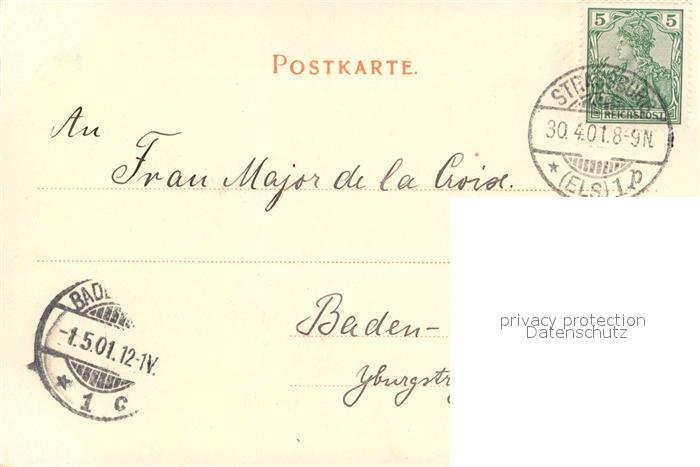 5 5
REICHSPOST
POSTKARTE.
STRASSBURG
30.4.01.8-9N.
* (ELS) 1p
An
Frau Major de la Croix.
BADE
-1.5.01.12-1V.
* 1 c
Baden-
Yburgstr
privacy protection
Datenschutz